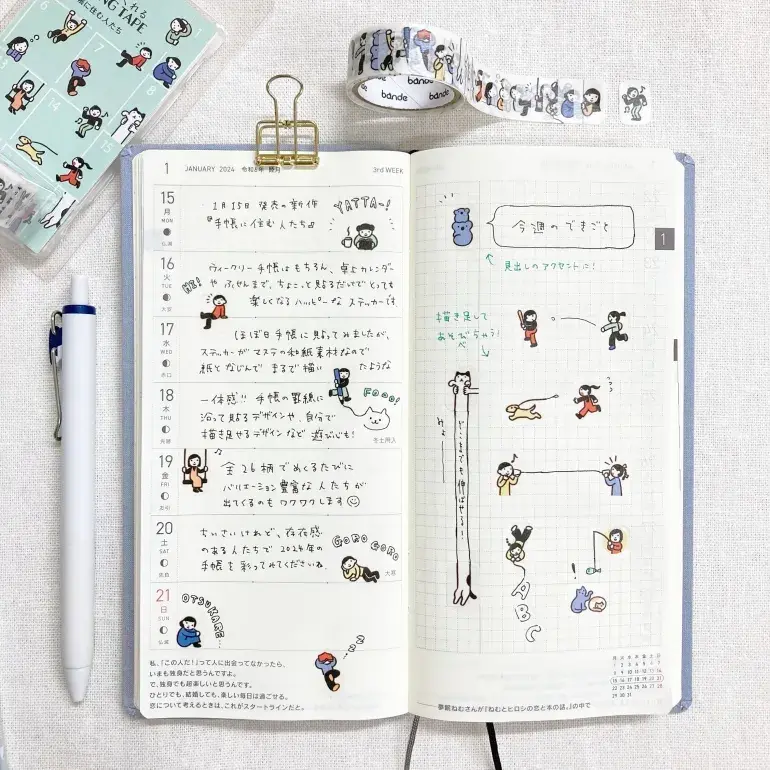 くれる
NG TAPE
帳に住む人たち
6
7
8
14
15
bande
bande
bande
1 JANUARY 2024 令和6年 睦月 3rd WEEK
15
月
MON
仏滅
1月15日 発表の新作
『手帳に住む人たち』
YATTA~!
16
火
TUE
大安
HEY!
ウィークリー手帳はもちろん、卓上カレンダー
や ふせんまで、ちょこっと貼るだけでとっても
楽しくなるハッピーな ステッカーです
17
水
WED
赤口
ほぼ日手帳に貼ってみましたが、
ステッカーがマステの和紙素材なので
紙となじんで まるで描い たような
18
木
THU
先勝
一体感!! 手帳の罫線に
沿って貼るデザインや、自分で
描き足せるデザインなど 遊びごころも!
Fooo!
冬土用入
19
金
FRI
友引
全26柄でめくるたびに
バリエーション豊富な人たちが
出てくるのもワクワクします
20
土
SAT
先負
ちいさいけれど、存在感
のある人たちで 2024年の
手帳を彩ってみてくださいね。
GORO GORO
大寒
21
日
SUN
仏滅
OTSUKARE...
zzz
私、「この人だ!」って人に出会ってなかったら、
いまも独身だと思うんですよ。
で、独身でも超楽しいと思うんです。
ひとりでも、結婚しても、楽しい毎日は過ごせる。
恋について考えるときは、これがスタートラインだと。
今週のできごと
1
見出しのアクセントに!
描き足して
あそびちゃう!
どこまでも伸ばせる!
みょーーん
ABC
!
月 火 水 木 金 土 日
1 2 3 4 5 6 7
8 9 10 11 12 13 14
15 16 17 18 19 20 21
22 23 24 25 26 27 28
29 30 31
──夢眠ねむさんが『ねむとヒロシの恋と本の話。』の中で